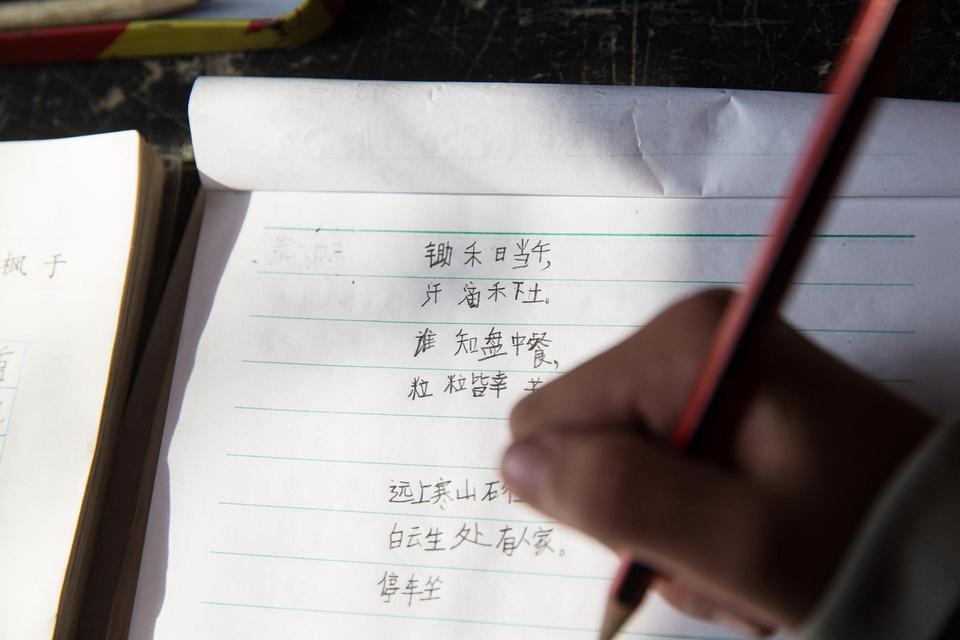 枫 于
锄禾日当午,
汗 禾下土。
谁知盘中餐,
粒粒皆幸
远上寒山石
白云生处有人家。
停车坐